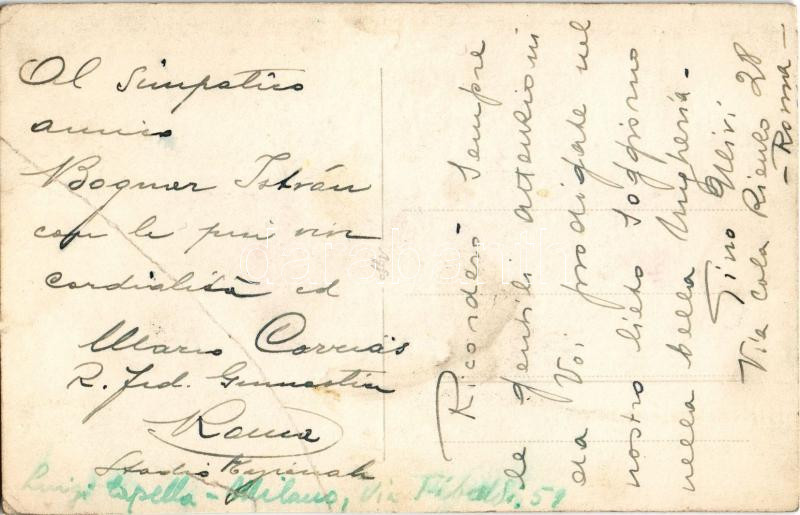 Al simpatico
amico
Bogner István
con le più vive
cordialità ed
Mario Corrias
R. Fed. Ginnastica
Roma
Stadio
Luigi Capella - Milano, Via 51
Ricorderò sempre
le gentili attenzioni
da Voi prodigate nel
nostro lieto soggiorno
nella bella Ungheria -
Tino
Via Cola Rienzo 28
- Roma -